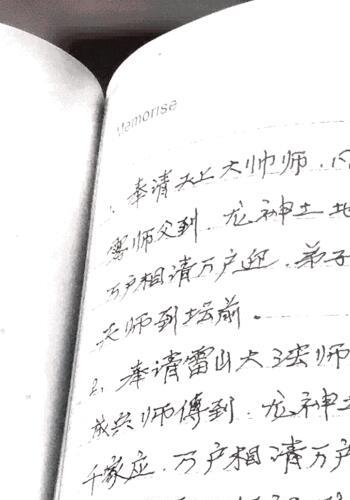 Memorise
1. 奉请天上大帅师.
雪师父到. 龙神土地
万户相请万户迎. 弟子
天师到坛前.
2. 奉请雷山大法师
成兴师傅到. 龙神土
千家应. 万户相请万户